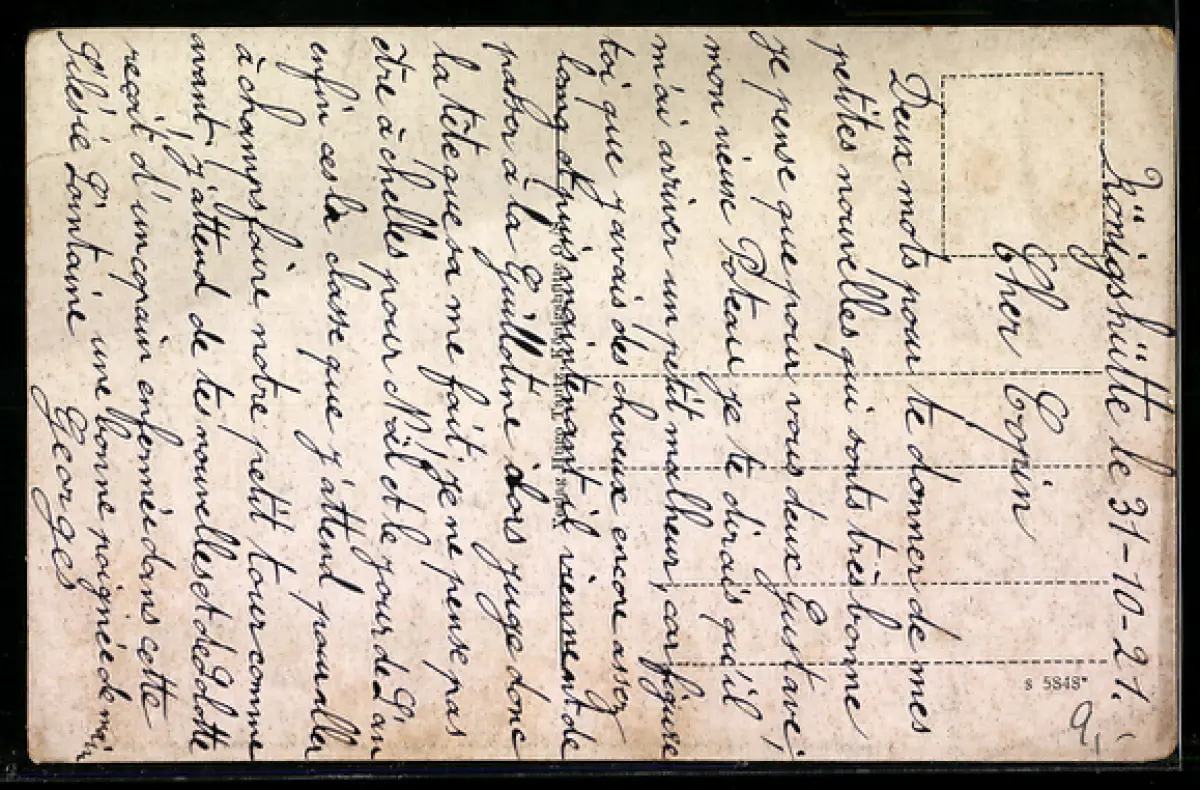 Königshütte le 31-10-21.
Cher Copin
Deux mots pour te donner de mes
petites nouvelles qui sonts très bonne
je pense que pour vous deux Gustave
mon vieuse Poteau je te dirais qu'il
m'ai arriver un petit malheur, car figure
toi que j'avais des cheveux encore assez
long depuis maintenant il viennent de
passer à la Guillotine alors juge donc
la tête que sa me fait, je ne pense pas
être à chelles pour Noël et le jour de L'an
enfin ces la classe que j'attend pour aller
à champs faire notre petit tour comme
avant, j'attend de tes nouvelles et de Lolotte
reçoit d'un copain enfermée dans cette
Silésie Lointaine une bonne poignée de main
Georges
S 5848*